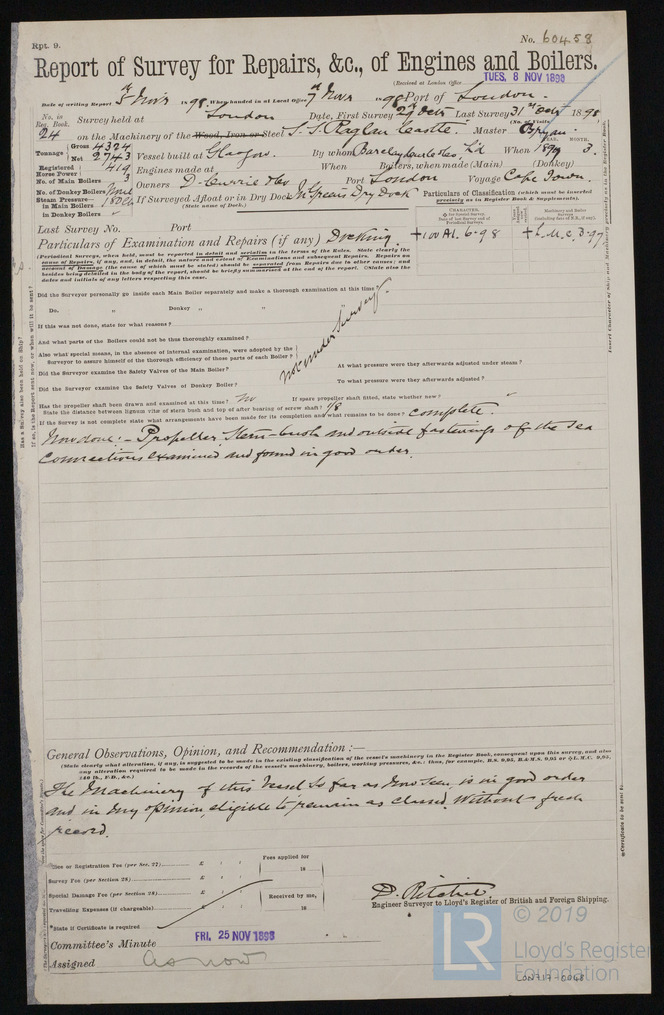 Rpt. 9.
No. 60458
Report of Survey for Repairs, &c., of Engines and Boilers.
(Received at London Office TUES. 8 NOV 1898
Date of writing Report 5th Novr 1898 When handed in at Local Office 7th Novr 1898 Port of London.
No. in Reg. Book. 24 Survey held at London Date, First Survey 29th Octr Last Survey 31st Octr 1898
(No. of Visits
on the Machinery of the Wood, Iron or Steel S.S. Raglan Castle. Master
Tonnage Gross 4324 Net 2743 Vessel built at Glasgow. By whom Barclay Curle & Co, Ld When 1897 3.
YEAR. MONTH.
Registered Horse Power 419 Engines made at When Boilers, when made (Main) (Donkey)
No. of Main Boilers 3 Owners D. Currie & Co Port London Voyage Cape Town.
No. of Donkey Boilers None
Steam Pressure in Main Boilers 180 lb If Surveyed Afloat or in Dry Dock In Greens Dry Dock
in Donkey Boilers
(State name of Dock.)
Particulars of Classification (which must be inserted precisely as in Register Book & Supplements).
Last Survey No. Port
+100A1. 6.98 +L.M.C. 3.97
Particulars of Examination and Repairs (if any) Docking.
(Periodical Surveys, when held, must be reported in detail and seriatim in the terms of the Rules. State clearly the
cause of Repairs, if any, and, in detail, the nature and extent of Examinations and subsequent Repairs. Repairs on
account of Damage (the cause of which must be stated) should be separated from Repairs due to other causes; and
besides being detailed in the body of the report, should be briefly summarised at the end of the report. State also the
dates and initials of any letters respecting this case.
Did the Surveyor personally go inside each Main Boiler separately and make a thorough examination at this time?
Do. „ Donkey „ „
If this was not done, state for what reasons?
not under survey.
And what parts of the Boilers could not be thus thoroughly examined?
Also what special means, in the absence of internal examination, were adopted by the
Surveyor to assure himself of the thorough efficiency of those parts of each Boiler?
Did the Surveyor examine the Safety Valves of the Main Boiler? At what pressure were they afterwards adjusted under steam?
Did the Surveyor examine the Safety Valves of Donkey Boiler? To what pressure were they afterwards adjusted?
Has the propeller shaft been drawn and examined at this time? No If spare propeller shaft fitted, state whether new?
State the distance between lignum vitæ of stern bush and top of after bearing of screw shaft? 1/8
If the Survey is not complete state what arrangements have been made for its completion and what remains to be done? complete.
Now done:- Propeller, stern-bush and outside fastenings of the sea
connections examined and found in good order.
General Observations, Opinion, and Recommendation:—
(State clearly what alteration, if any, is suggested to be made in the existing classification of the vessel's machinery in the Register Book, consequent upon this survey, and also
any alteration required to be made in the records of the vessel's machinery, boilers, working pressures, &c.; thus, for example, B.S. 9,95, B.&M.S. 9,95 or L.M.C. 9,95,
The Machinery of this Vessel so far as now seen, is in good order
and in my opinion, eligible to remain as classed, without fresh
record.
Office or Registration Fee (per Sec. 27) £ : : Fees applied for
18
Survey Fee (per Section 28) £ : :
Special Damage Fee (per Section 28) £ : : Received by me,
Travelling Expenses (if chargeable) £ : : 18
*State if Certificate is required
D. Ritchie
Engineer Surveyor to Lloyd's Register of British and Foreign Shipping.
Committee's Minute FRI. 25 NOV 1898
Assigned as now
© 2019
LR
Lloyd's Register
Foundation
LON717-0068